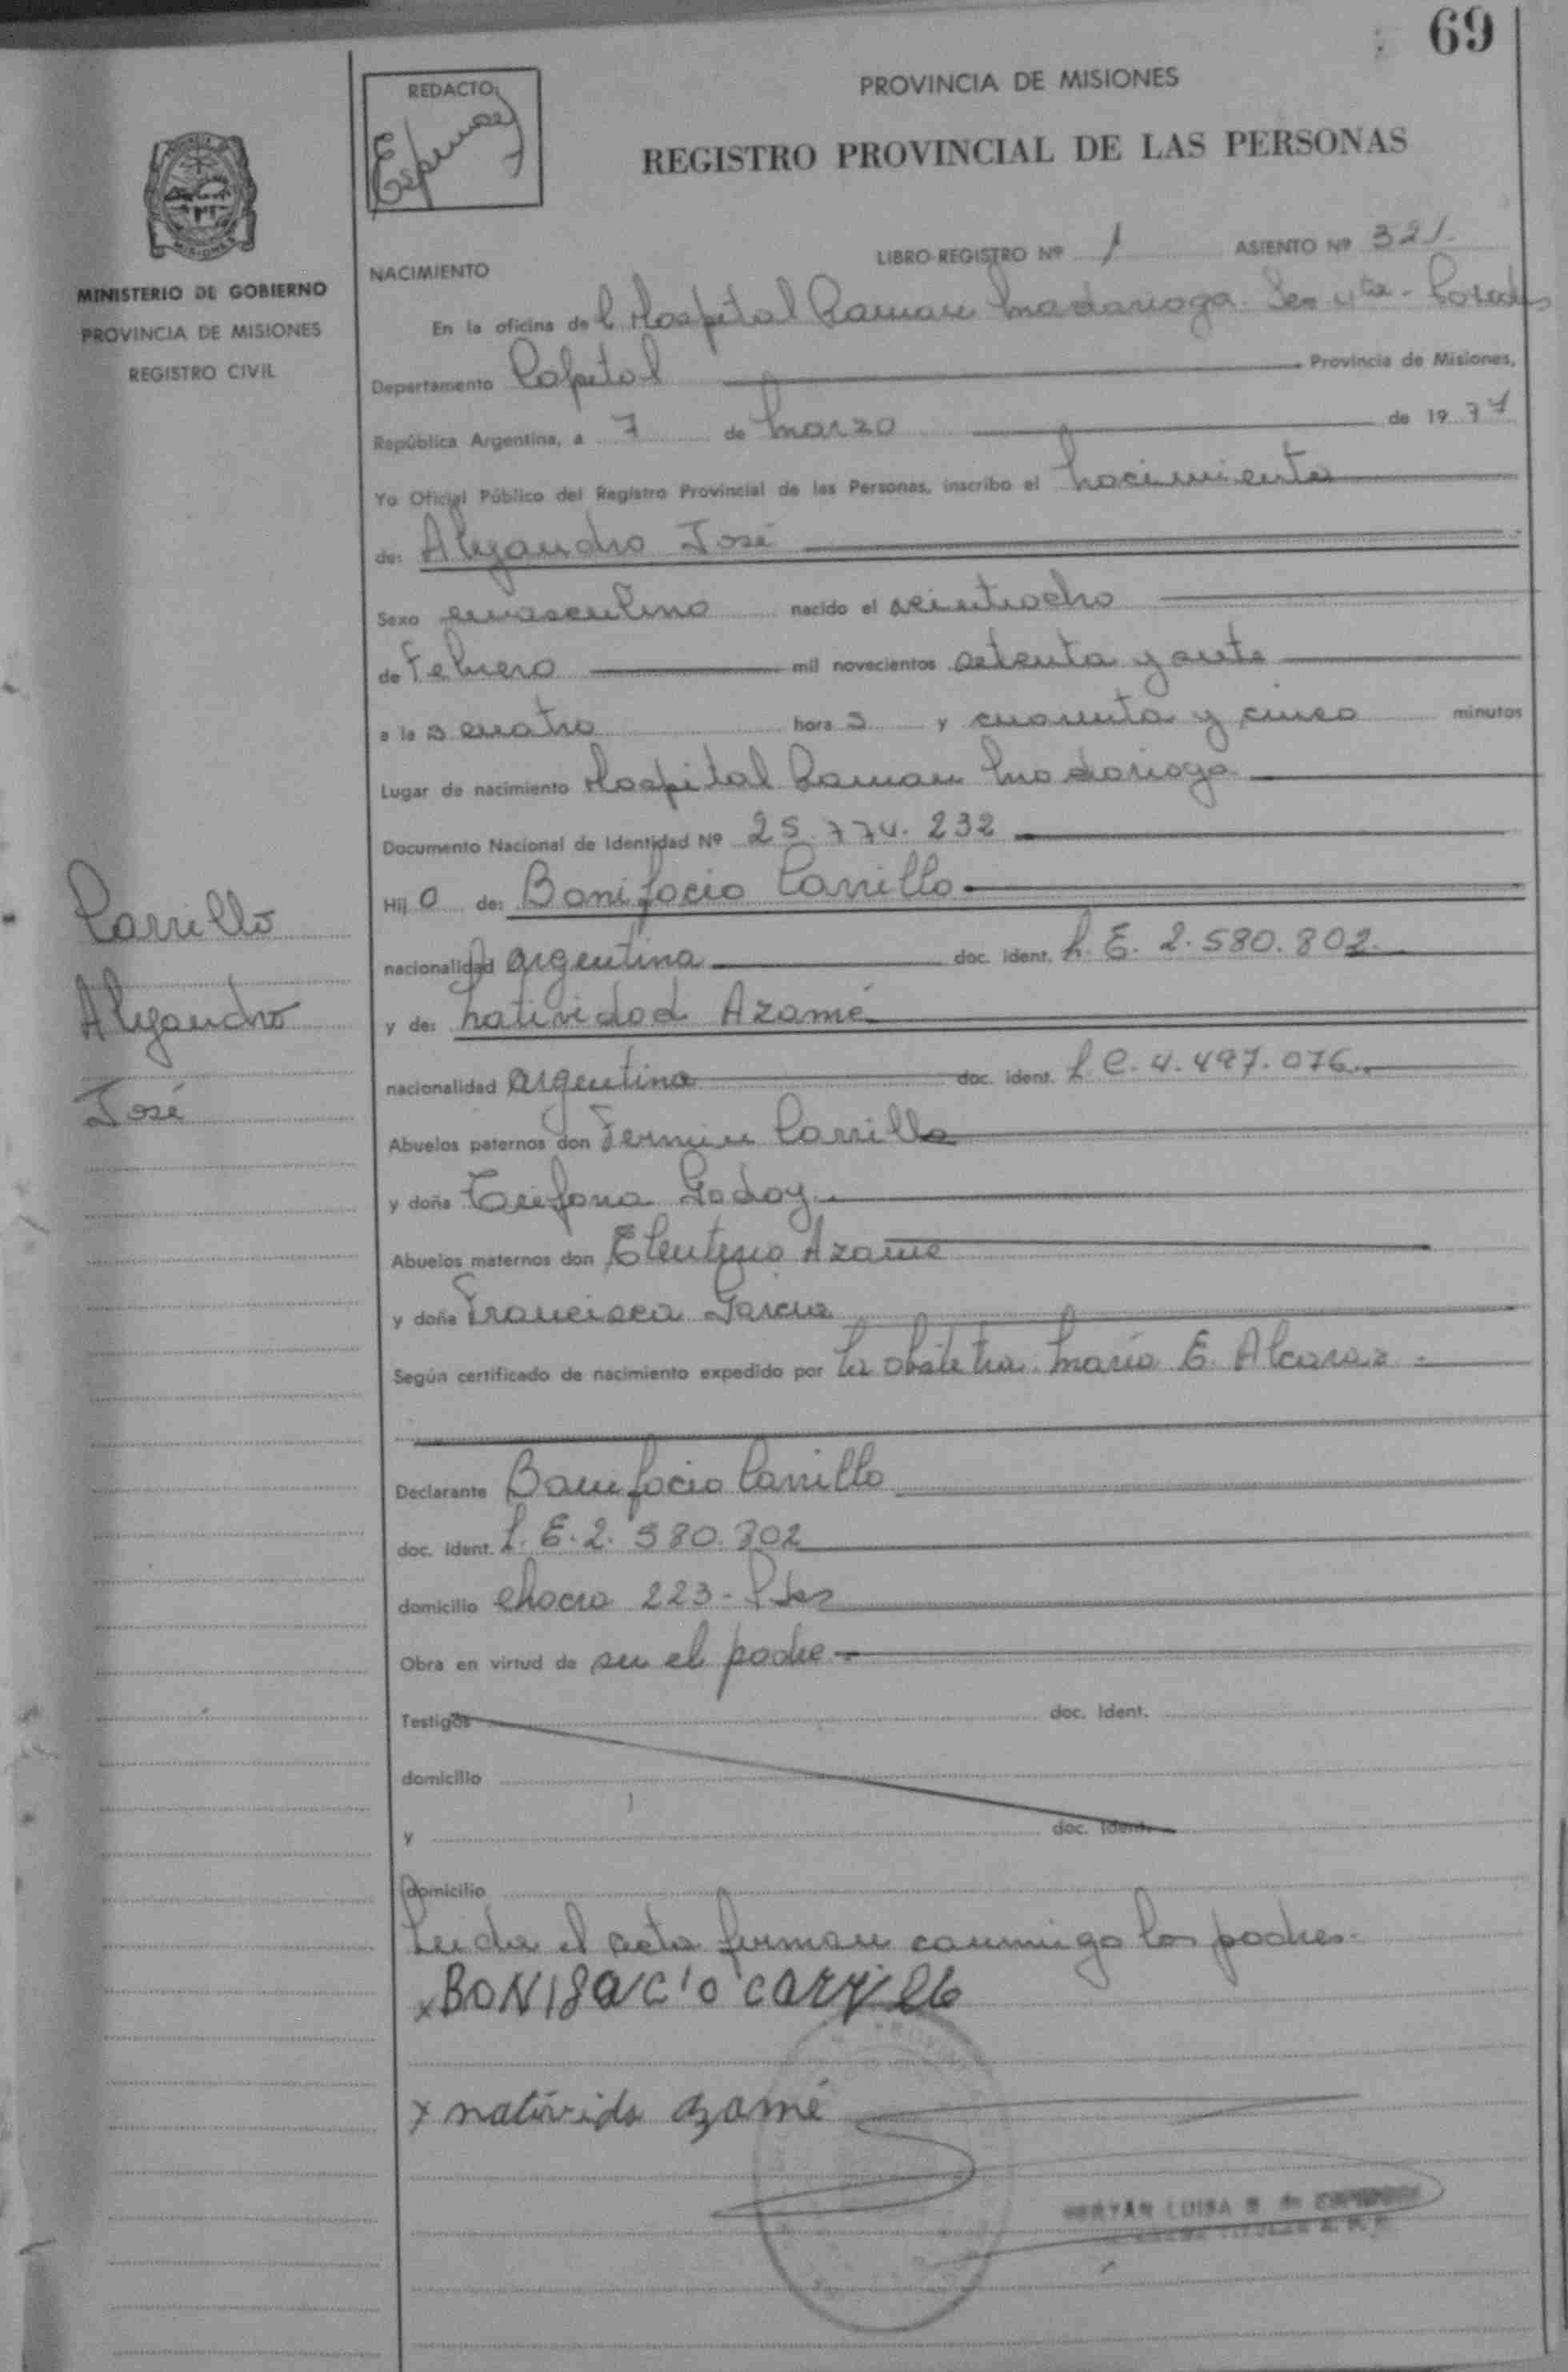 69
REDACTO:
PROVINCIA DE MISIONES
REGISTRO PROVINCIAL DE LAS PERSONAS
MINISTERIO DE GOBIERNO
PROVINCIA DE MISIONES
REGISTRO CIVIL
LIBRO-REGISTRO Nº 1 ASIENTO Nº 321.
NACIMIENTO
En la oficina del Hospital Ramon Madariaga. Sec 4ta - Posadas
Departamento Capital Provincia de Misiones,
República Argentina, a 7 de Marzo de 1977
Yo Oficial Público del Registro Provincial de las Personas, inscribo el nacimiento
de: Alejandro José
Sexo masculino nacido el veintiocho
de Febrero mil novecientos setenta y siete
a las cuatro horas y cuarenta y cinco minutos
Lugar de nacimiento Hospital Ramon Madariaga
Documento Nacional de Identidad Nº 25.774.232
Hijo de: Bonifacio Carrillo
nacionalidad argentina doc. ident. L.E. 2.580.802.
y de: Natividad Azamé
nacionalidad argentina doc. ident. L.C. 4.497.076.
Abuelos paternos don Fermin Carrillo
y doña Trifona Godoy
Abuelos maternos don Eleuterio Azame
y doña Francisca Garcia
Según certificado de nacimiento expedido por la obstetra María E. Alcaraz.
Declarante Bonifacio Carrillo
doc. ident. L.E. 2.580.802
domicilio chacra 223 - Pdas
Obra en virtud de ser el padre
Testigos doc. ident.
domicilio
y doc. ident.
domicilio
Leida el acta firman conmigo los padres.
x BONIFACIO CARRILLO
x natívida azamé
LUISA
Carrillo
Alejandro
José